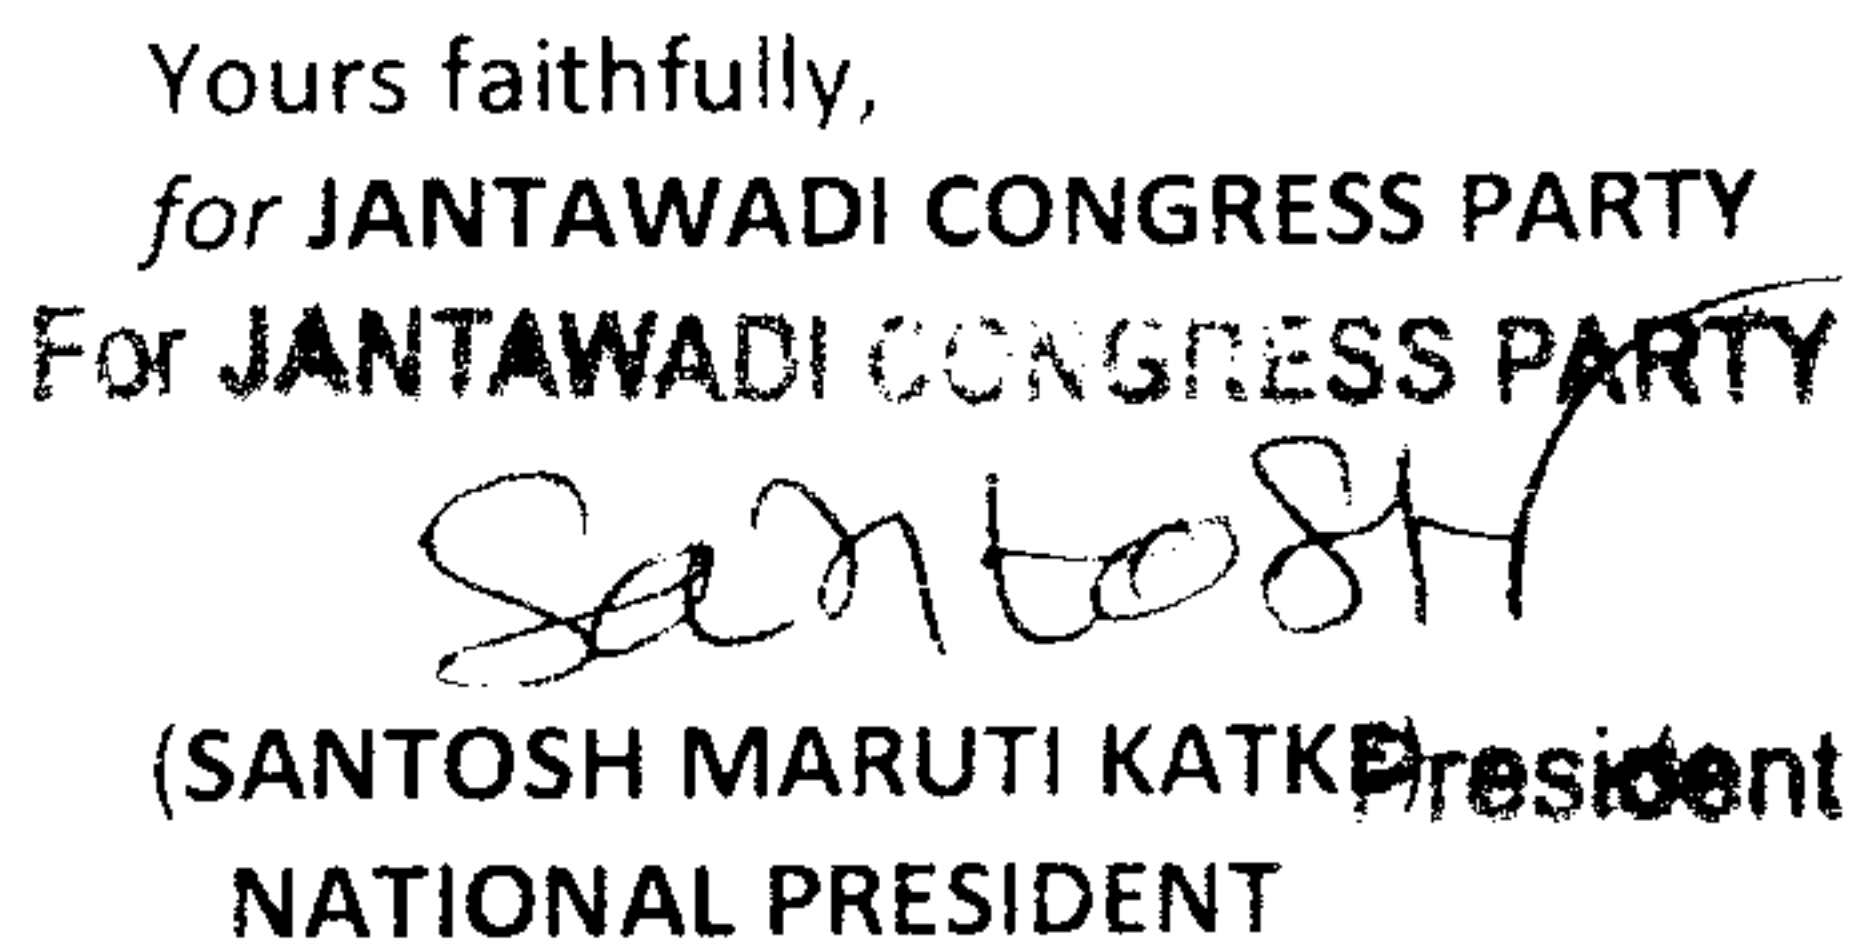 Yours faithfully,
for JANTAWADI CONGRESS PARTY
For JANTAWADI CONGRESS PARTY
SantoSH
(SANTOSH MARUTI KATKE) President
NATIONAL PRESIDENT